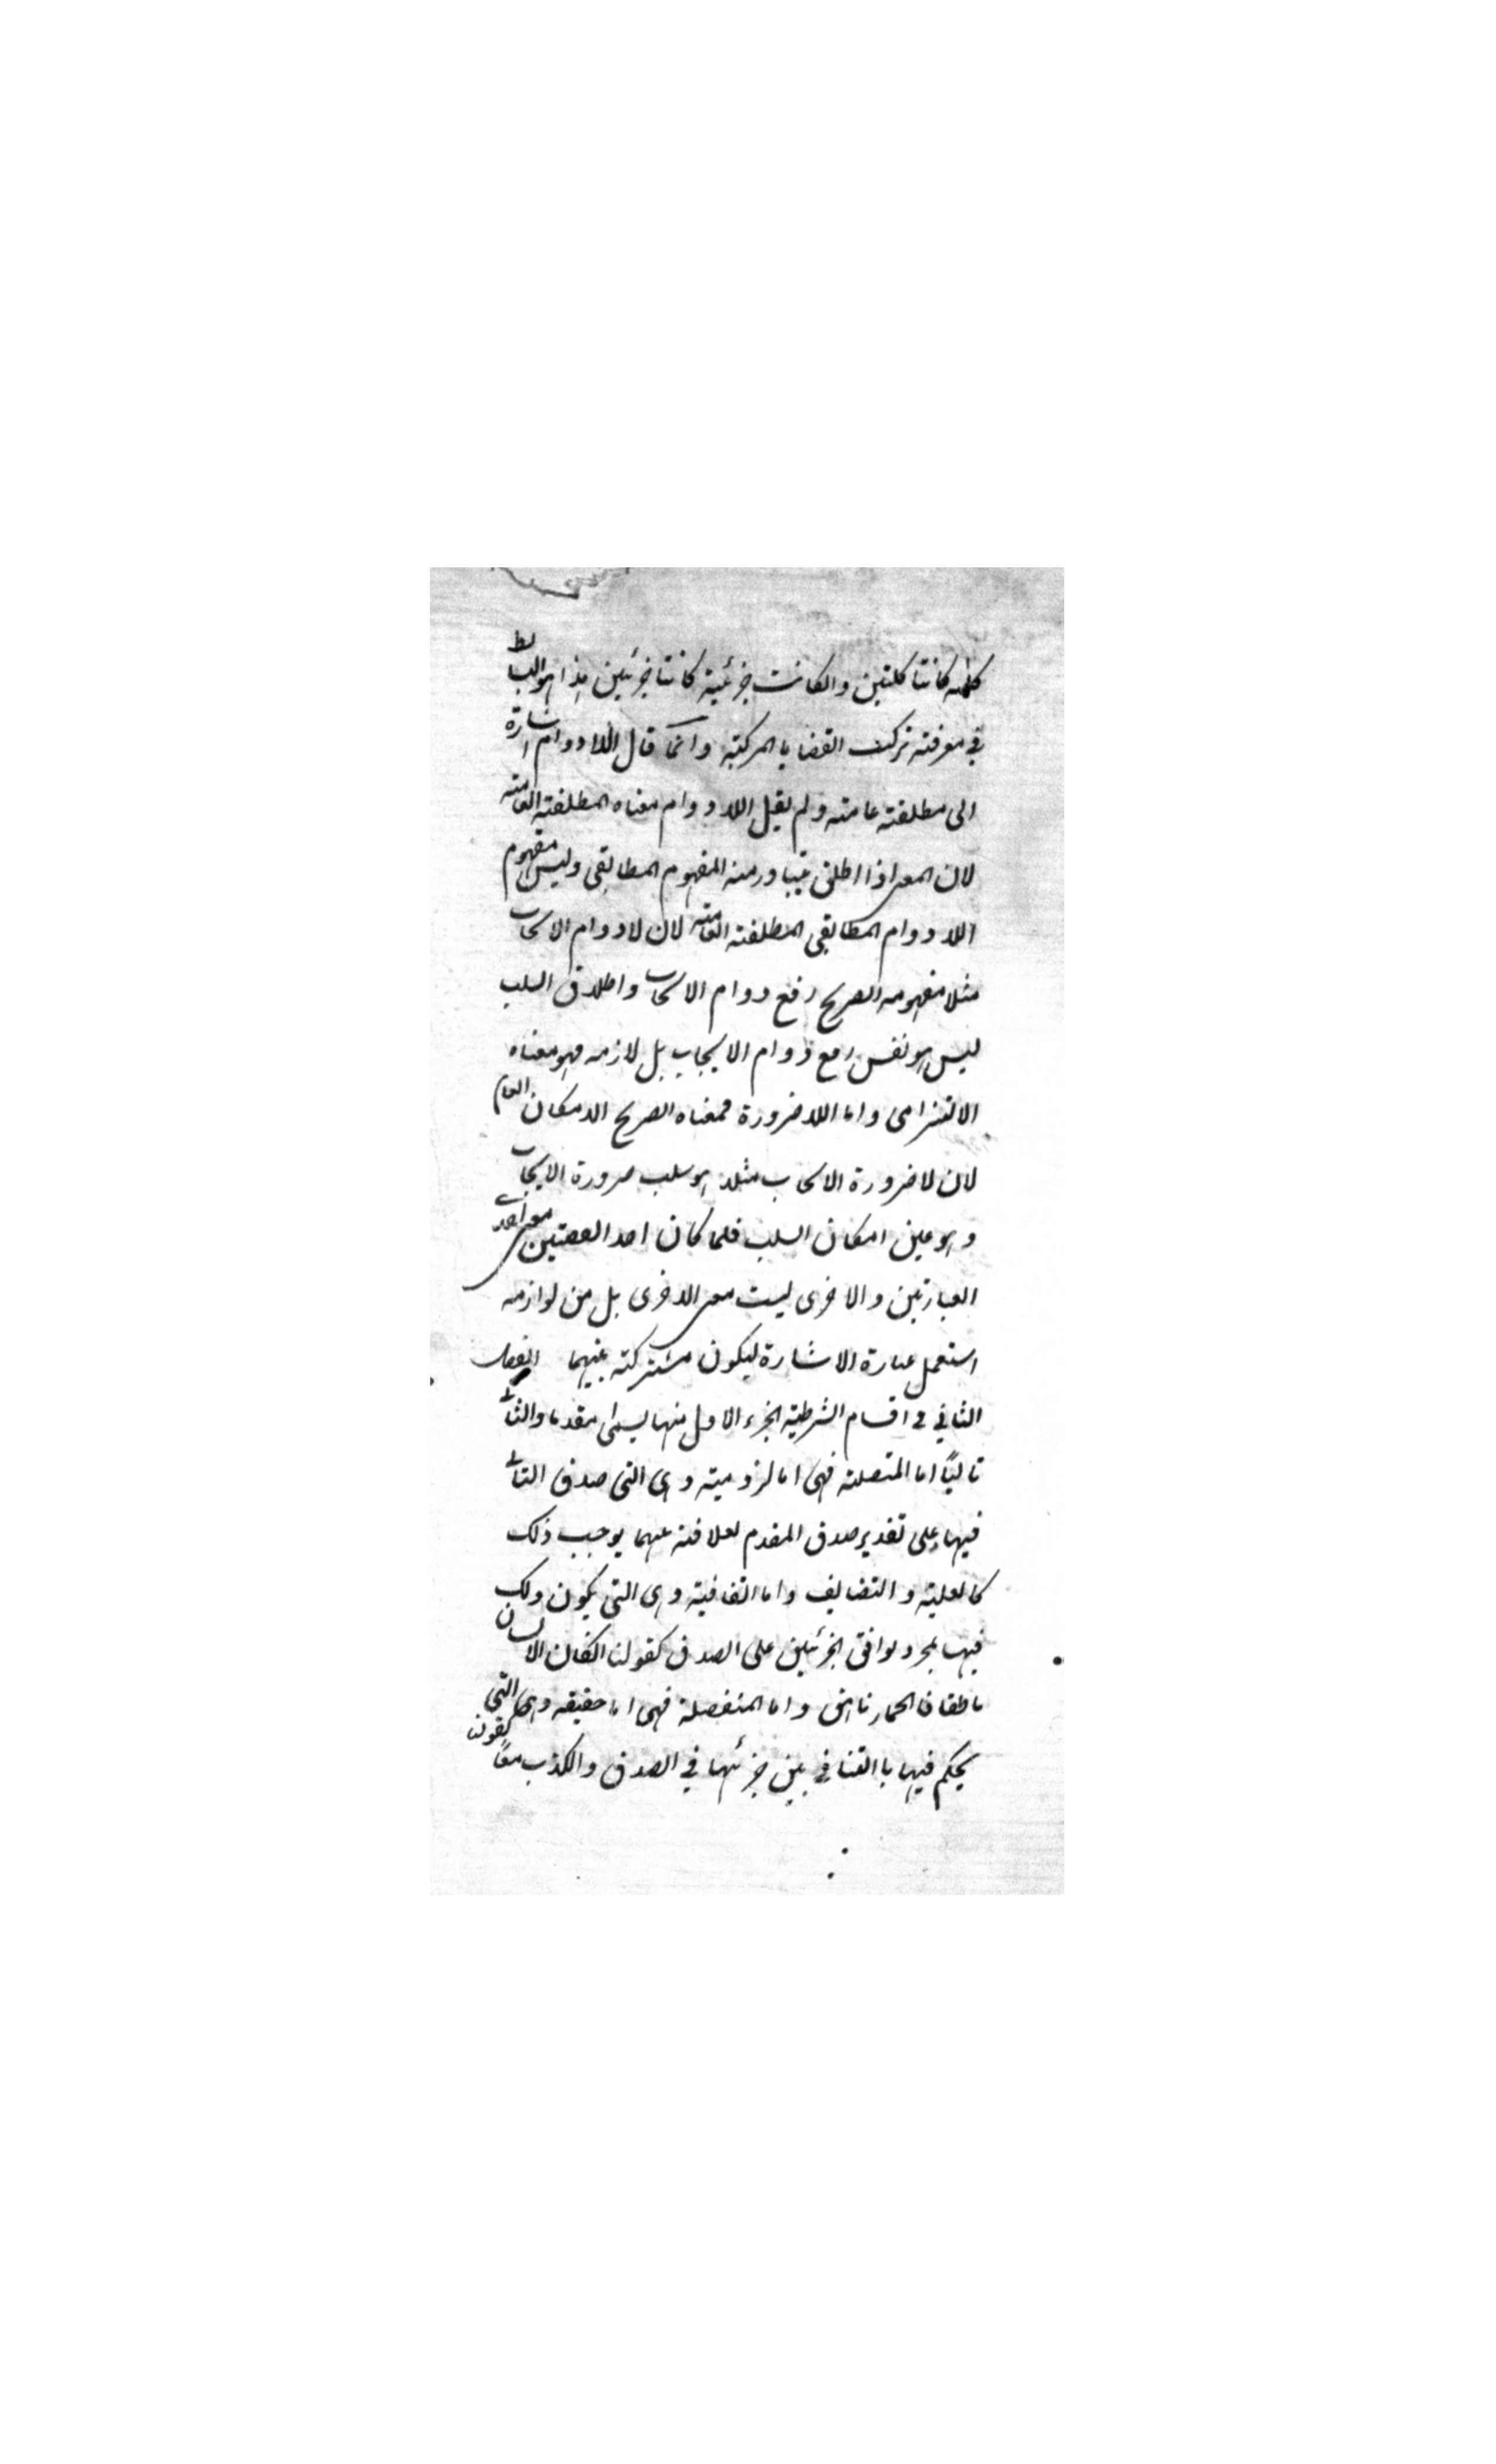 كلية كانتا كليتين والكانت جزئية كانتا جزئيتين هذا هو الضابط
في معرفة تركيب القضايا المركبة وانما قال اللادوام اشارة
الى مطلقة عامة ولم يقل اللادوام معناه المطلقة العامة
لان المعنى اذا اطلق يتبادر منه المفهوم المطابقي وليس مفهوم
اللادوام المطابقي المطلقة العامة لان لادوام الايجاب
مثلا مفهومه الصريح رفع دوام الايجاب واطلاق السلب
ليس هو نفس رفع دوام الايجاب بل لازمه فهو معناه
الالتزامي واما اللاضرورة فمعناه الصريح الامكان العام
لان لاضرورة الايجاب مثلا هو سلب ضرورة الايجاب
وهو عين امكان السلب فلما كان احد القضيتين معنى احدى
العبارتين والاخرى ليست معنى الاخرى بل من لوازمه
استعمل عبارة الاشارة ليكون مشتركة بينهما الفصل
الثاني في اقسام الشرطية الجزء الاول منها يسمى مقدما والثاني
تاليًا اما المتصلة فهي اما لزومية وهي التي صدق التالي
فيها على تقدير صدق المقدم لعلاقة بينهما يوجب ذلك
كالعلية والتضايف واما اتفاقية وهي التي يكون ذلك
فيها بمجرد توافق الجزئين على الصدق كقولنا انكان الانسان
ناطقا فالحمار ناهق واما المنفصلة فهي اما حقيقة وهي التي
يحكم فيها باالتنافي بين جزئها في الصدق والكذب معًا كقولنا